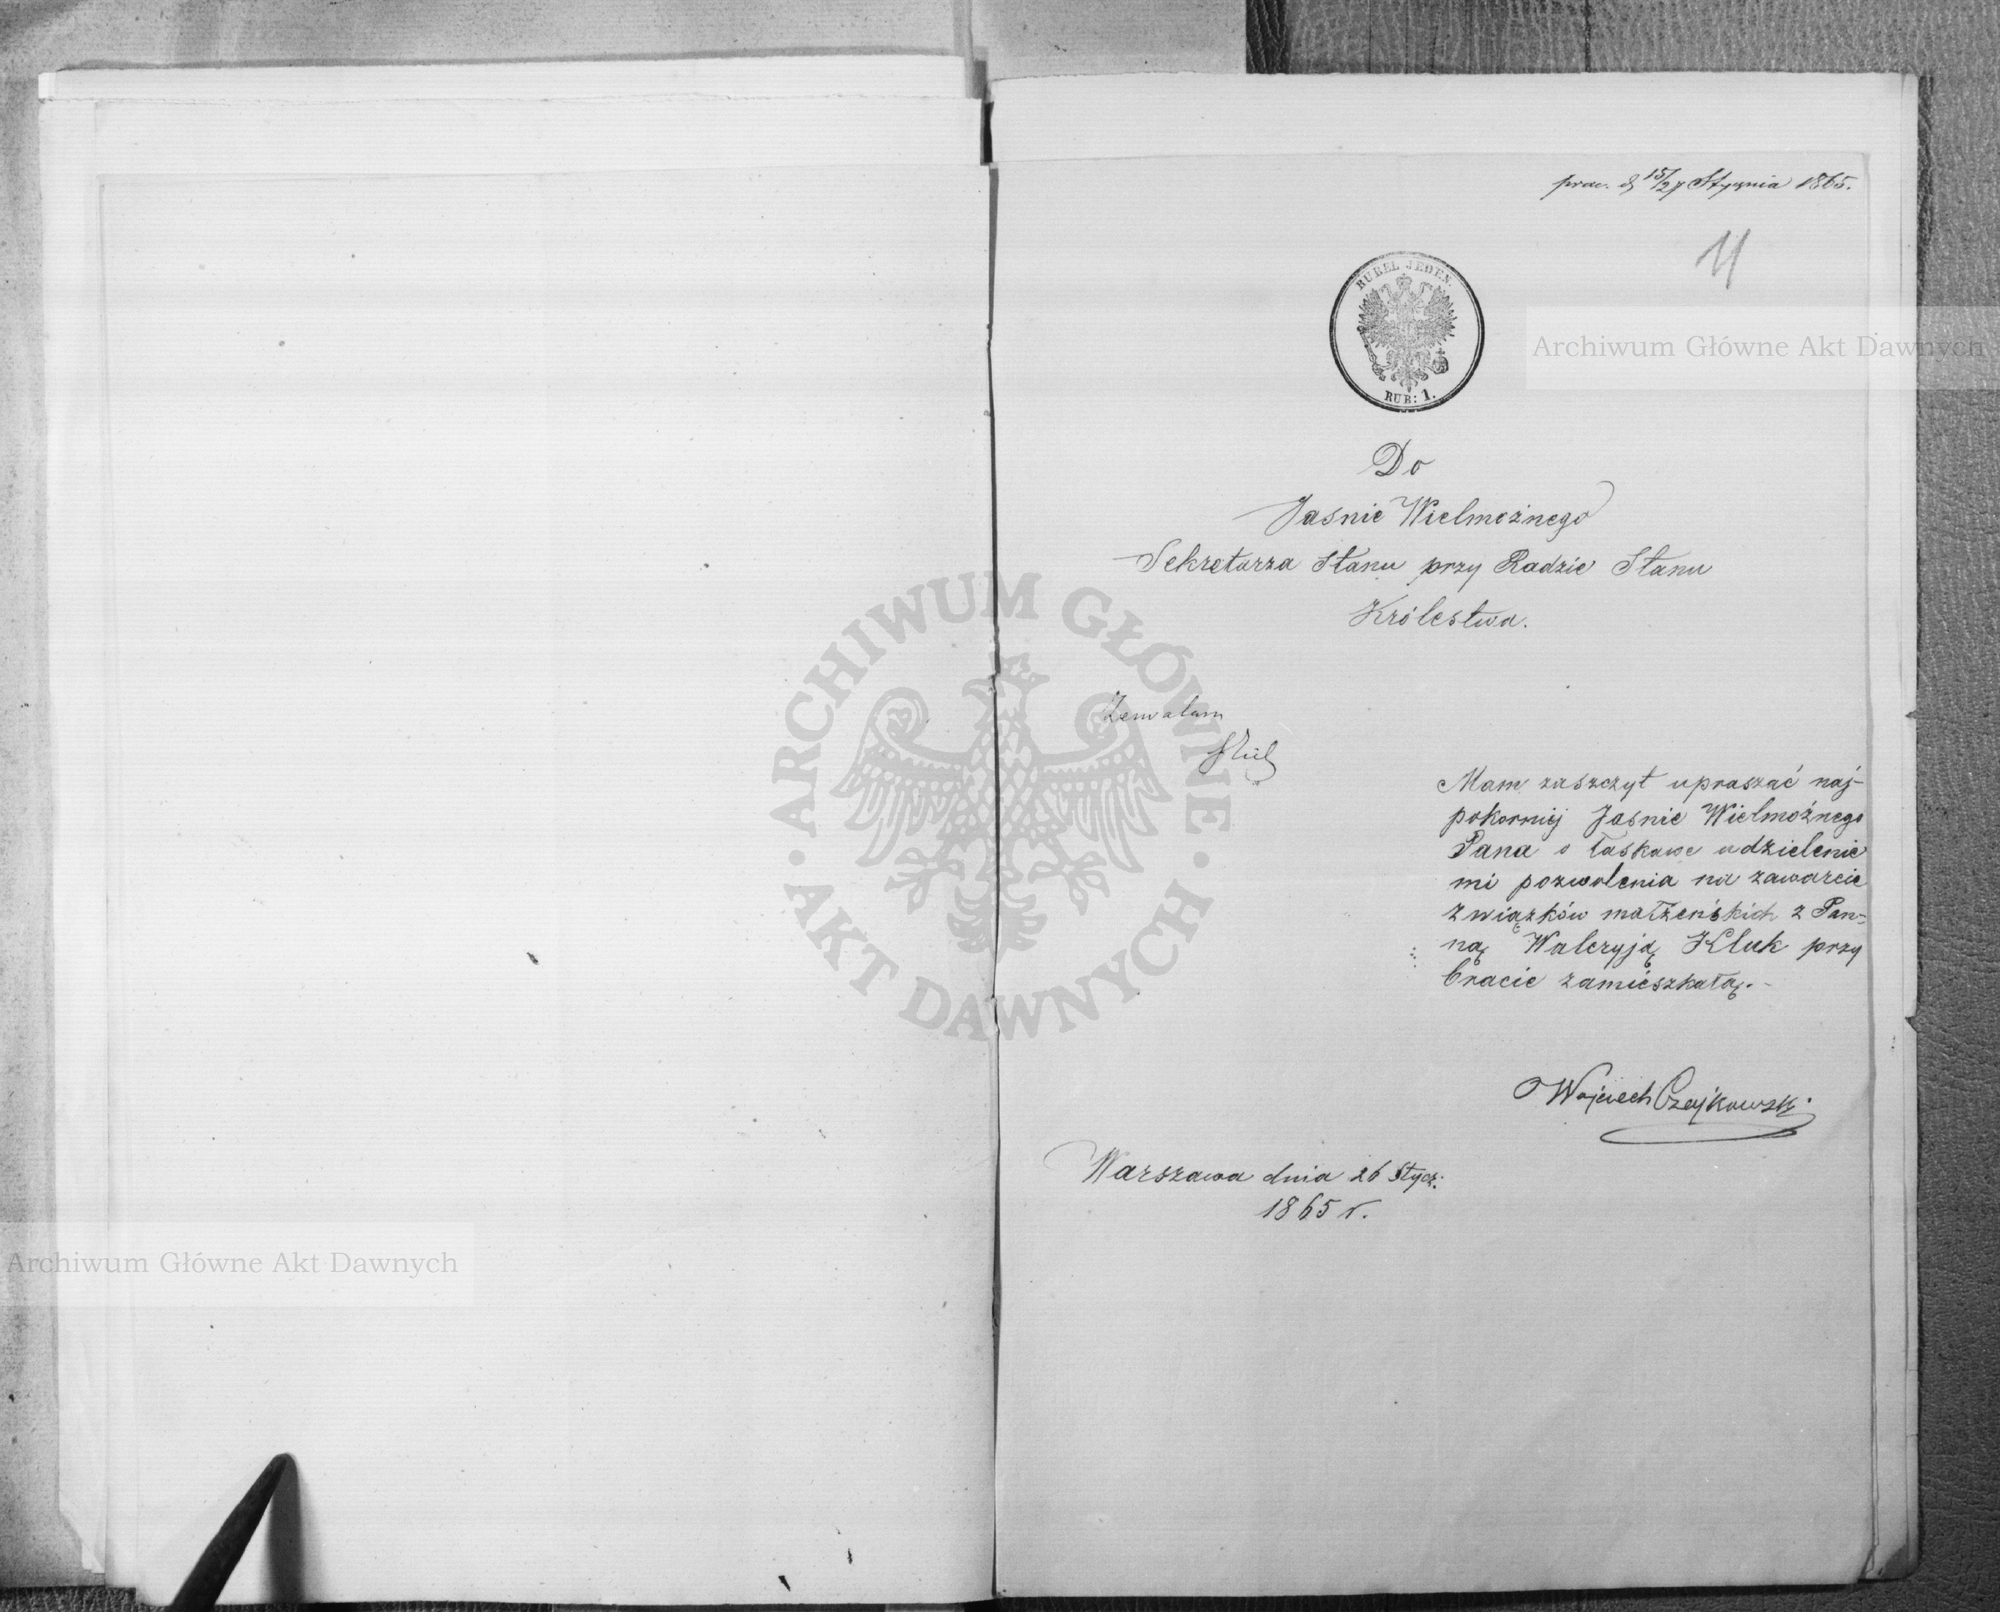 15/27 Stycznia 1865.
11
RUBEL JEDEN.
RUB: 1.
Do
Jaśnie Wielmożnego
Sekretarza Stanu przy Radzie Stanu
Królestwa.
Zezwalam
Mam zaszczyt upraszać naj-
pokorniej Jaśnie Wielmożnego
Pana o łaskawe udzielenie
mi pozwolenia na zawarcie
związków małżeńskich z Pan-
ną Waleryją Kluk przy
bracie zamieszkałą.-
Wojciech Czajkowski
Warszawa dnia 26 Stycz:
1865 r.
Archiwum Główne Akt Dawnych
Archiwum Główne Akt Dawnych
ARCHIWUM GŁÓWNE • AKT DAWNYCH •